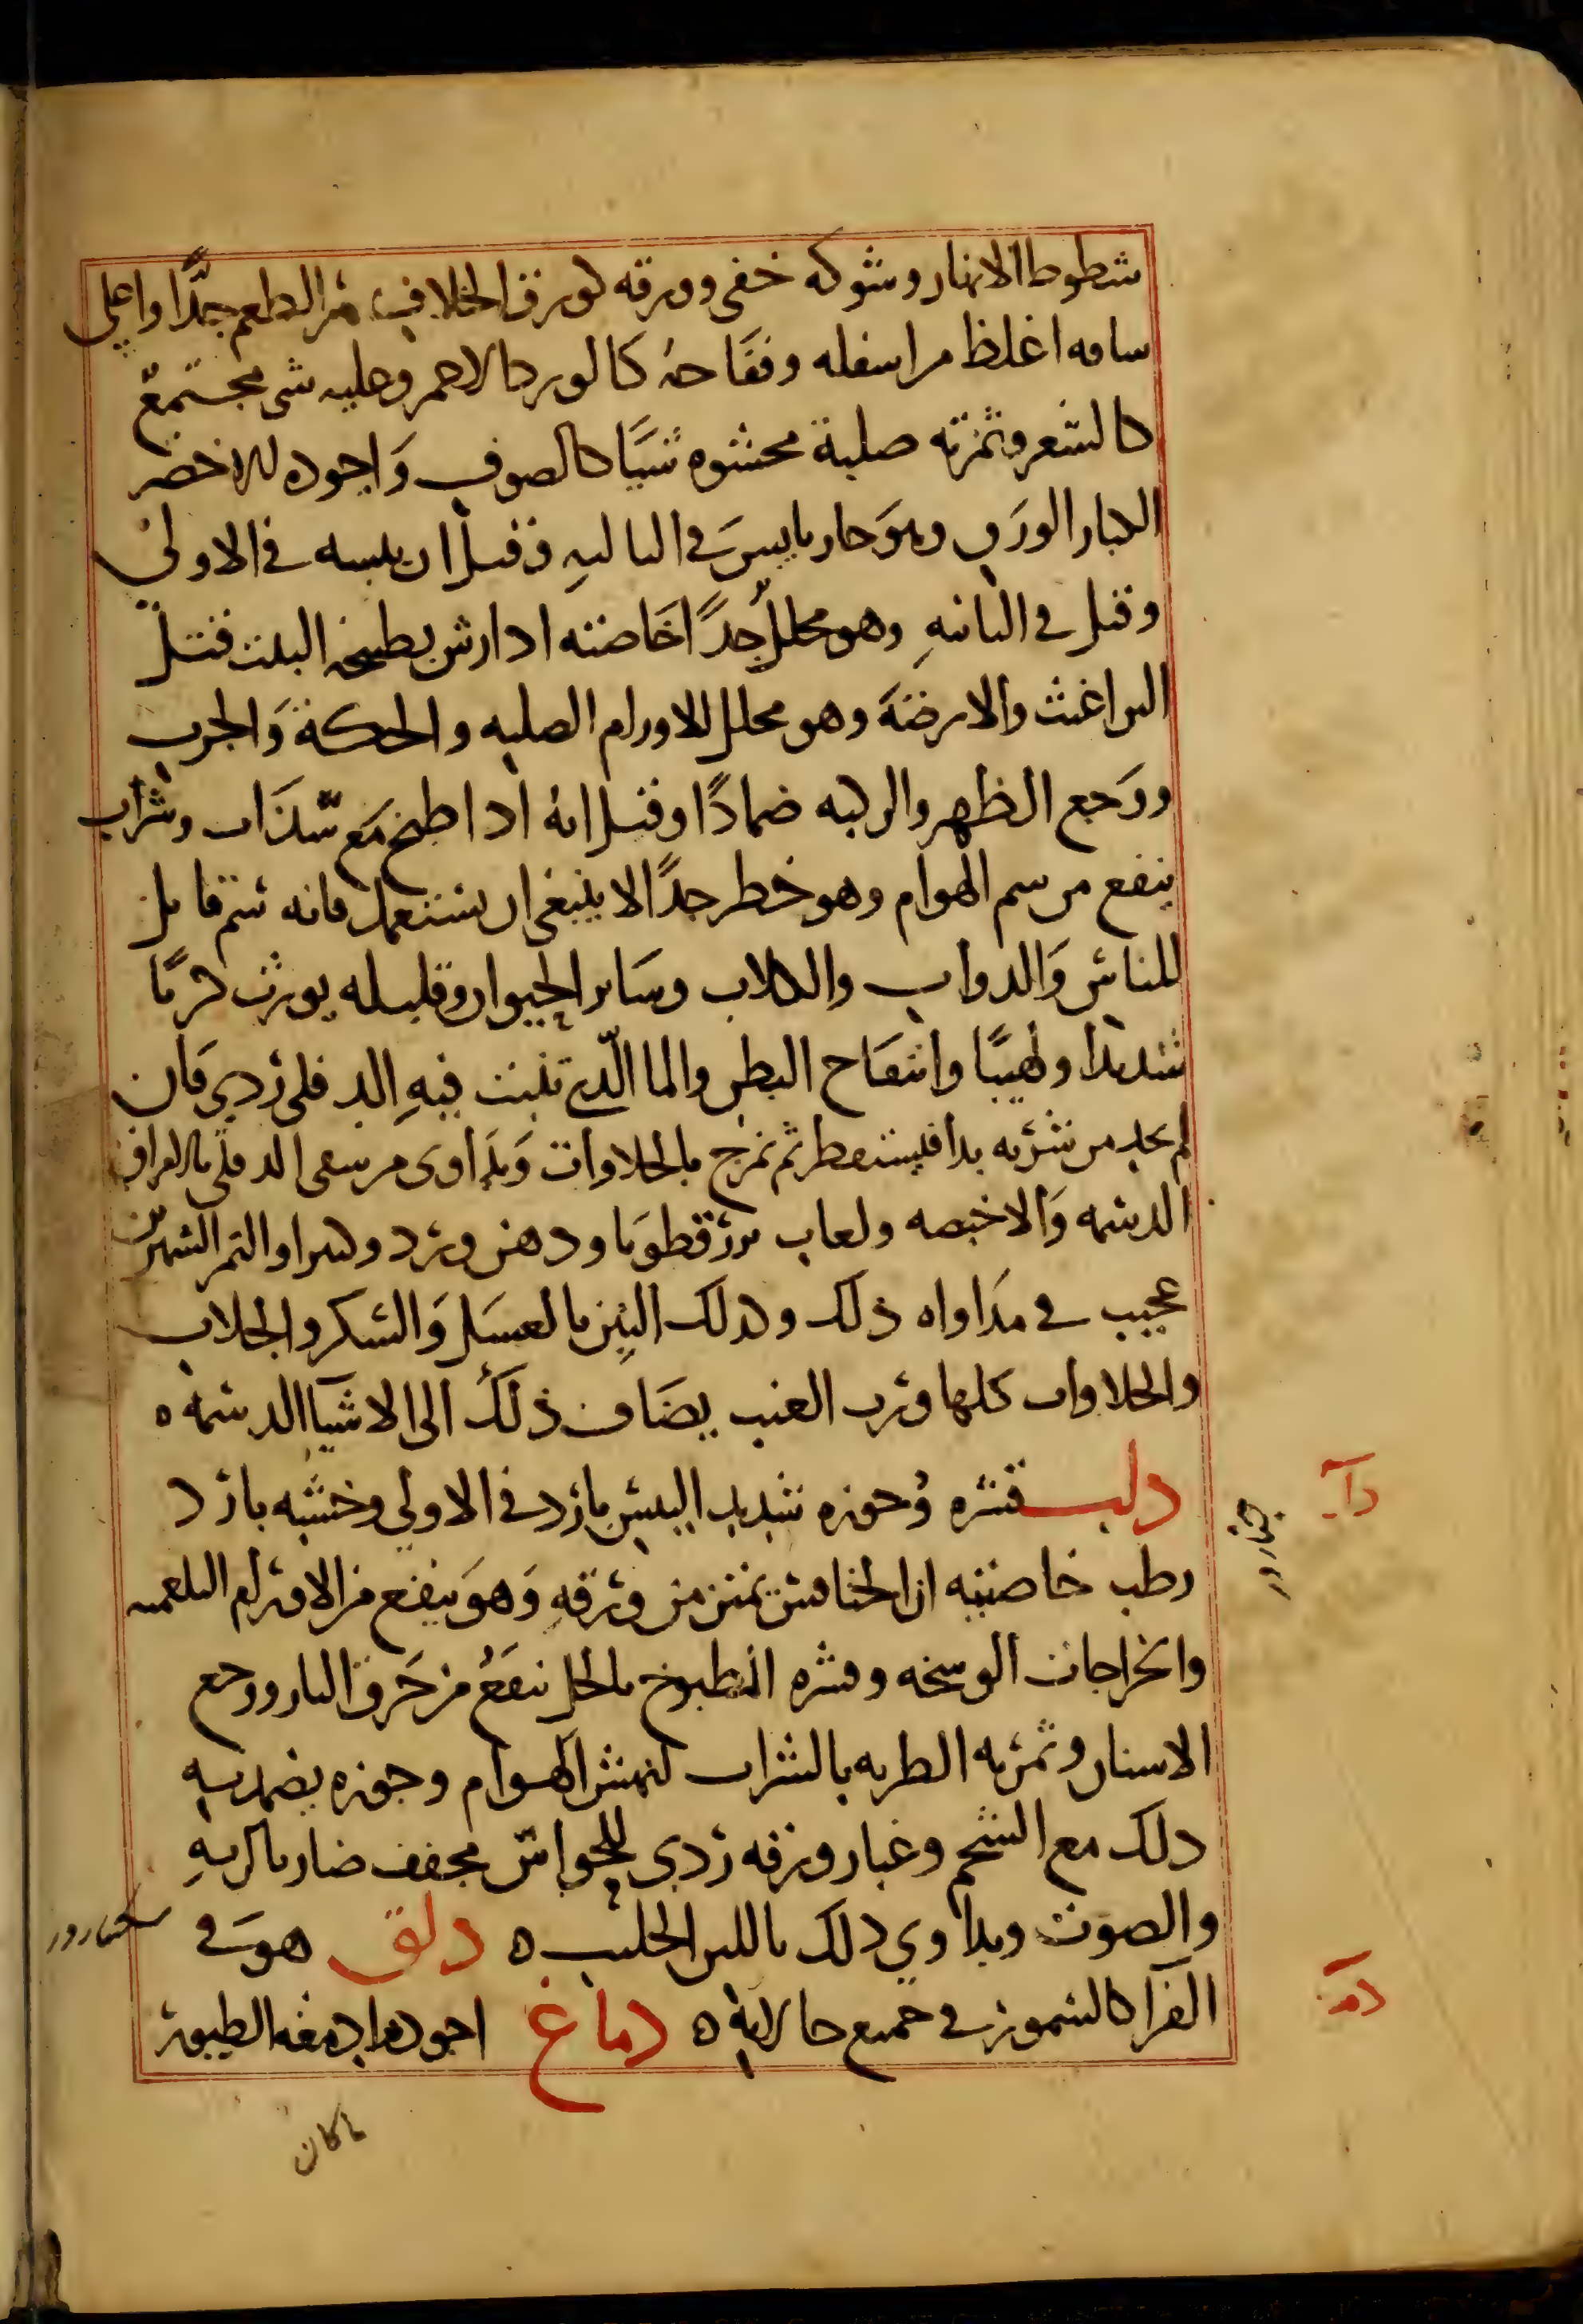 شطوط الانهار وشوكه خفى وورقه كورق الخلاف مر الطعم جدًّا واعلى
ساقه اغلظ من اسفله وفقاحهُ كالورد الاحمر وعليه شى مجتمع
كالشعر وثمرته صلبة محشوه شيَّا كالصوف وَاجوده الاخضر
الكبار الورق وهوَ حار يابس في الثالثهِ وقيل ان يبسه في الاولى
وقيل في الثانيهِ وهو محلل جدًا خاصته اذا رش بطبيخه البيت قتل
البراغيث والارضة وهو محلل للاورام الصلبه والحكة وَالجرب
ووَجع الظهر والركبه ضمادًا وقيل انهُ اذا طبخ مَع سذاب وشراب
ينفع من سم الهوام وهو خطر جدًا لا ينبغى ان يستعمل فانه سم قاتل
للناس وَالدواب والكلاب وسَائر الحيوان وقليله يورث كربًا
شديدًا ولهيبًا وانتفاخ البطن والما الّذي تنبت فيهِ الدفلى ردي فان
لم يجد من شربه بدا فليستقطر ثم تمزج بالحلاوات وَيداوى من سقى الدفلى بالمراق
الدسمه وَالاخبصه ولعاب بزرقطونا ودهن ورد وكثيرا والتمر الشهرين
عجيب في مدَاواه ذلك وكذلك التين بالعسَل وَالسكر والجلاب
والحلاوات كلها ورب العنب يضَاف ذلَك الى الاشيا الدسمه ه
دلب قشره وجوزه شديد اليبس بارد في الاولي وخشبه بارد
رطب خاصيته ان الخنافس تمتن من ورقهِ وَهوَ ينفع من الاورام البلغميه
والخراجات الوسخه وقشره المطبوخ بالخل ينفعُ من حَرق النار ووجع
الاسنان وثمرته الطريه بالشراب لنهش الهوام وجوزه يضمد به
ذلك مع الشحم وغبار ورقه ردي للحواس مجفف ضار بالريهِ
والصوت ويداوي ذلك باللبن الحليب ه دلق هوَ في
الفرا كالسمور في جميع حالاته ه دماغ اجودها ادمغه الطيور
ماكان